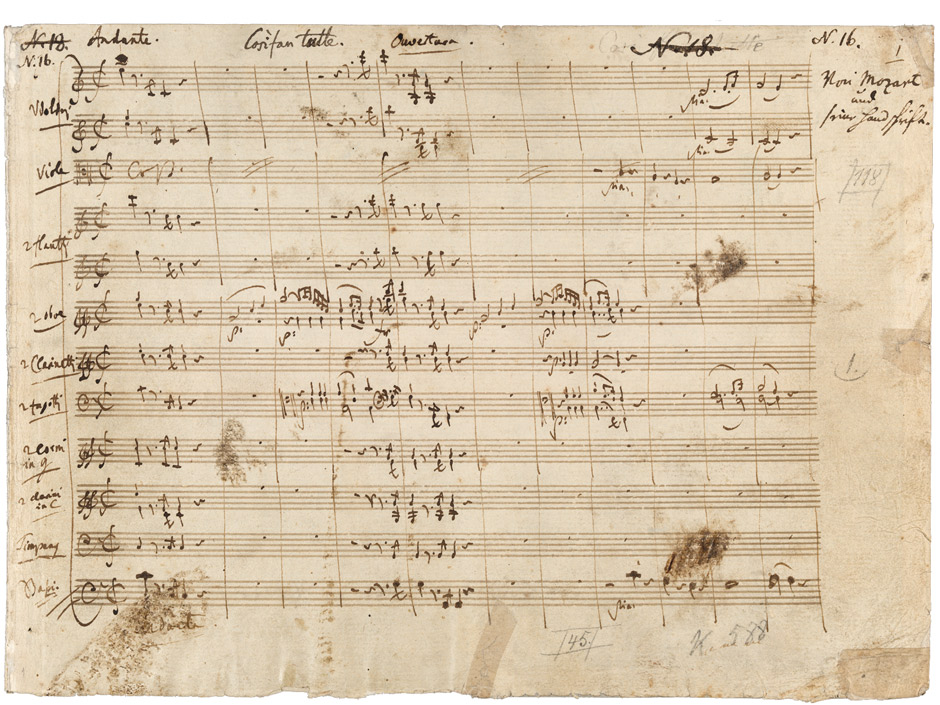 N. 18. Andante. Cosi fan tutte. Ouvertura. N. 18. N. 16.
N. 16.
1
Von Mozart
und
seine Handschrift.
Violini
Viole
[118]
2 flauti
2 oboe
1.
2 Clarinetti
2 fagotti
2 Corni
in g
2 clarini
in C
Timpany
Bassi.
[45]
K 588